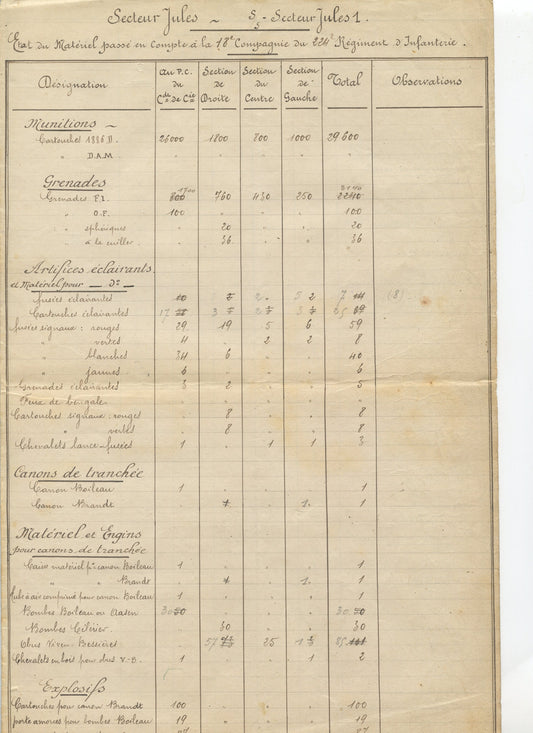 Secteur Jules ~ S/s-Secteur Jules 1.
Etat du Matériel passé en Compte à la 18e Compagnie du 224e Régiment d'Infanterie.
Désignation | au P.C. du Cdt de Cie | Section de Droite | Section du Centre | Section de Gauche | Total | Observations
Munitions ~
Cartouches 1886 D. 26000 1800 800 1000 29600
" D.A.M. " " " " "
Grenades
1700 3140
Grenades F.1. 800 760 430 250 2240
" O.F. 100 " " " 100
" sphériques " 20 " " 20
" à la cuiller " 36 " " 36
Artifices éclairants
et Matériel pour _ do _
fusées éclairantes 2 5 2 7 (8)
Cartouches éclairantes 17 3 25
fusées signaux : rouges 29 19 5 6 59
" vertes 4 " 2 2 8
" blanches 34 6 " " 40
" jaunes 6 " " " 6
Grenades éclairantes 3 2 " " 5
Feux de bengale " " " " "
Cartouches signaux : rouges " 8 " " 8
" vertes " 8 " " 8
Chevalets lance-fusées 1 " 1 1 3
Canons de tranchée
Canon Boileau 1 " " " 1
Canon Brandt " 1 " 1 1
Matériel et Engins
pour canons de tranchée
Caisse matériel pr canon Boileau 1 " " " 1
" " Brandt " 1 " 1 1
Tube à air comprimé pour canon Boileau 1 " " " 1
Bombes Boileau ou Aasen 30 " " " 30
Bombes Cellerier " 30 " " 30
Obus Viven-Bessières " 57 25 1 85
Chevalets en bois pour obus V-B. 1 " " 1 2
Explosifs
Cartouches pour canon Brandt 100 " " " 100
porte amorces pour bombes Boileau 19 " " " 19